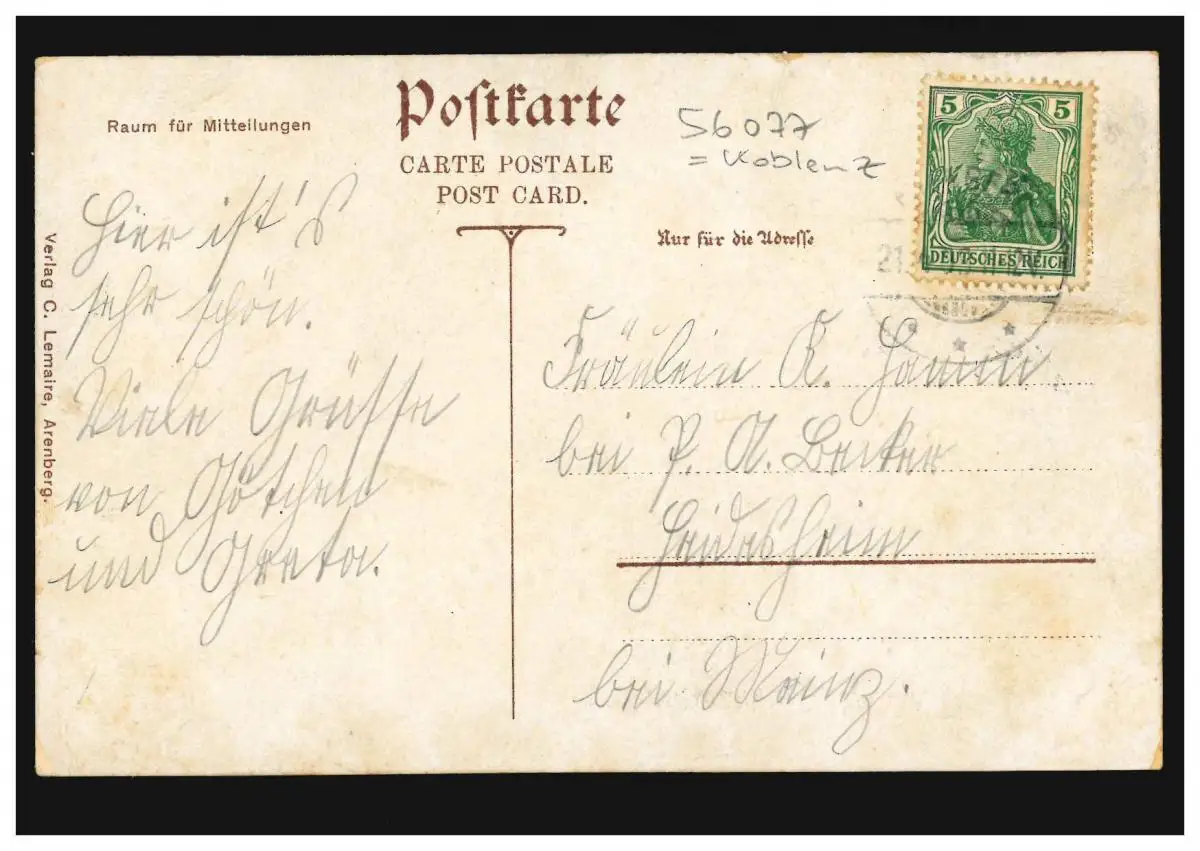 Raum für Mitteilungen
Postkarte
CARTE POSTALE
POST CARD.
56077
= Koblenz
5 5
DEUTSCHES REICH
Nur für die Adresse
Verlag C. Lemaire, Arenberg.
Hier ist's
sehr schön.
Viele Grüsse
von Götchen
und Greta.
Fräulein K. Hamm
bei P. A. Becker
Heidesheim
bei Mainz.